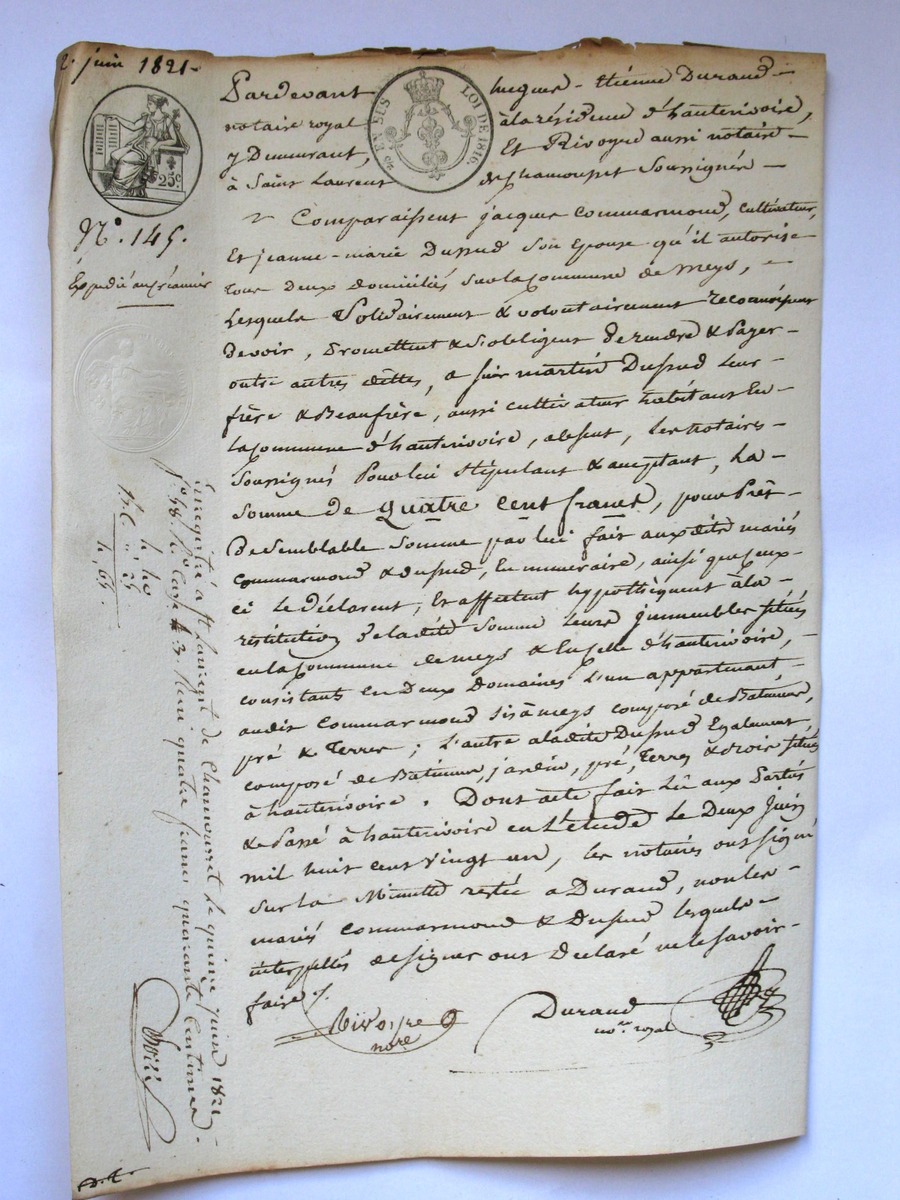 2. juin 1821-
Pardevant hugues-étienne Durand-
notaire royal à la résidence d'hauterivoire,
y Demeurant, Et Rivoyre aussi notaire-
à Saint Laurent de chamousset Soussignés-
LOI DE 1816.
25c
N.º 145.
Expédié au créancier
Comparaissent jacques commarmond, cultivateur,
Et jeanne-marie Dussud son épouse qu'il autorise
tous Deux domiciliés sur la commune de meys, -
Lesquels solidairement & volontairement reconnoissent
Devoir, promettent & s'obligent De rendre & payer-
outre autres dettes, a sieur martin Dussud Leur-
frère & Beaufrère, aussi cultivateur habitant En-
la commune d'hauterivoire, absent, Les Notaires-
Soussignés Pour lui stipulant & acceptant, La-
Somme de quatre cent francs, pour Prêt-
De semblable somme par lui fait aux dits mariés
commarmond & dussud, En numéraire, ainsi que ceux-
ci Le Déclarent; Et affectent hypothèquent à la-
restitution De la dite somme Leurs immeubles situés
en la commune de meys & En celle d'hauterivoire, -
consistants En Deux Domaines L'un appartenant-
audit commarmond sis à meys composé de Bâtiments,
pré & Terres; L'autre a la dite Dussud Egalement
composé de Bâtiments, jardin, pré, Terres & bois situés
à hauterivoire. Dont acte fait Lû aux Parties
& Passé à hauterivoire en L'etude Le Deux juin
mil huit cent vingt un, les notaires ont signé
sur la Minutte restée a Durand, non les-
mariés commarmond & Dussud lesquels-
interpellés de signer ont Déclaré ne le savoir-
faire ./.
Rivoyre Durand
nore. not.re royal
Enregistré a st Laurent de Chamousset le quinze juin 1821-
fo. 58. Ro. Case 3. Reçu quatre francs quarante Centimes